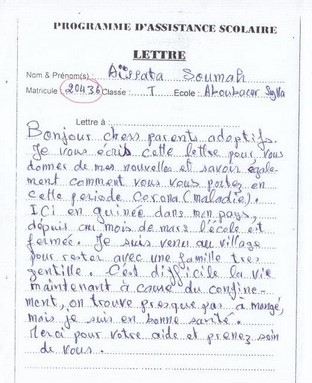 PROGRAMME D'ASSISTANCE SCOLAIRE
LETTRE
Nom & Prénom(s) : Aïssata Soumah
Matricule : 20436 Classe : T Ecole : Aboubacar Sylla
Lettre à :
Bonjour chers parents adoptifs.
Je vous écris cette lettre pour vous
donner de mes nouvelles et savoir égale
ment comment vous vous portez en
cette periode Corona (maladie).
ICi en guinée dans mon pays,
dépuis au mois de mars l'école est
fermée. Je suis venu au village
pour rester avec une famille tres
gentille. C'est difficile la vie
maintenant à cause du confine-
ment, on trouve presque pas à mangé,
mais je suis en bonne santé.
Merci pour votre aide et prenez soin
de vous.